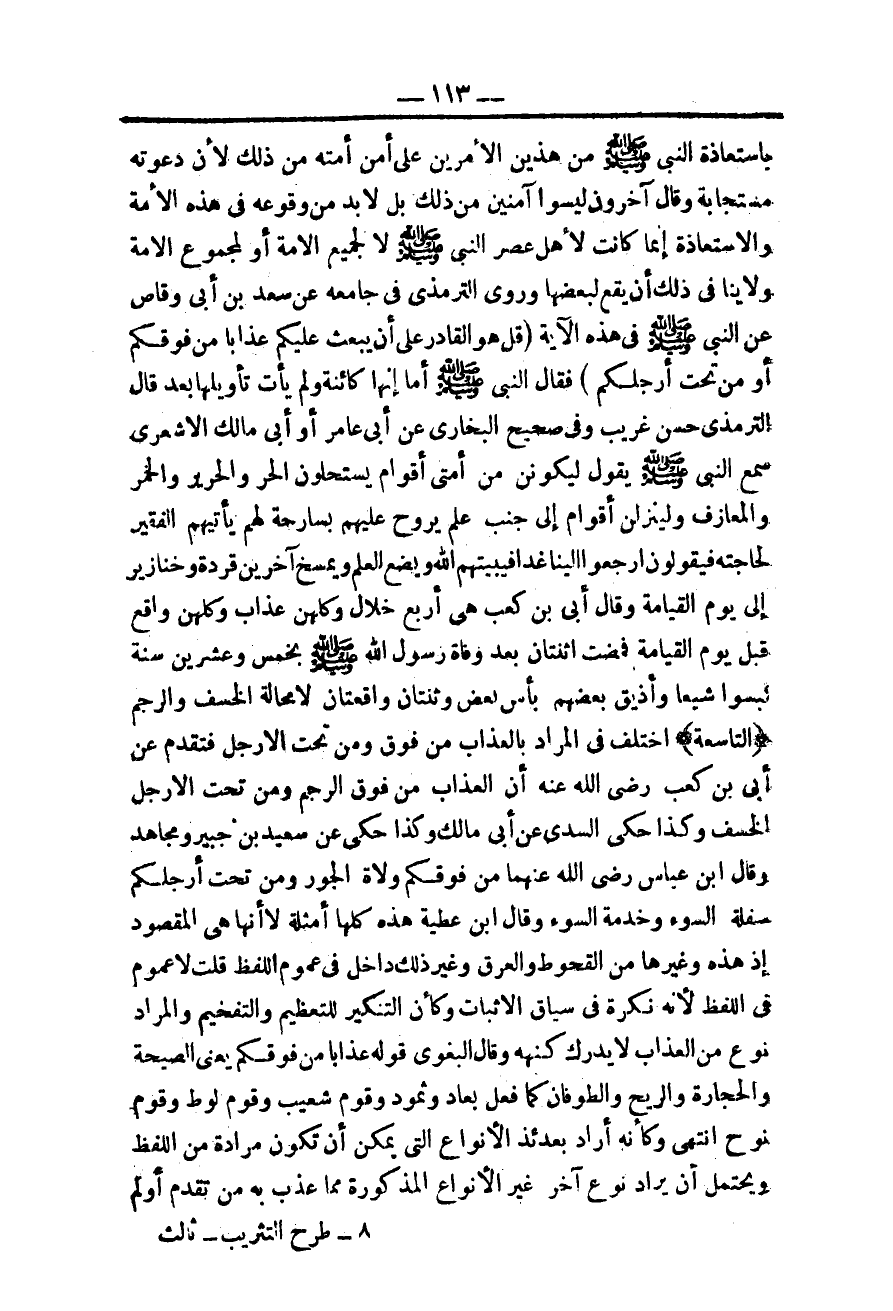 — ١١٣ —
باستعاذة النبي ﷺ من هذين الأمرين على أمن أمته من ذلك لأن دعوته
مستجابة وقال آخرون ليسوا آمنين من ذلك بل لابد من وقوعه فى هذه الأمة
والاستعاذة إنما كانت لأهل عصر النبي ﷺ لا لجميع الامة أو لمجموع الامة
ولاينا فى ذلك أن يقع لبعضها وروى الترمذى فى جامعه عن سعد بن أبى وقاص
عن النبي ﷺ فى هذه الآية (قل هو القادر على أن يبعث عليكم عذابا من فوقكم
أو من تحت أرجلكم) فقال النبي ﷺ أما إنها كائنة ولم يأت تأويلها بعد قال
الترمذى حسن غريب وفى صحيح البخارى عن أبى عامر أو أبى مالك الاشعرى
سمع النبي ﷺ يقول ليكونن من أمتى أقوام يستحلون الحر والحرير والخمر
والمعازف ولينزلن أقوام إلى جنب علم يروح عليهم بسارحة لهم يأتيهم الفقير
لحاجته فيقولون ارجعوا الينا غدا فيبيتهم الله ويضع العلم ويمسخ آخرين قردة وخنازير
إلى يوم القيامة وقال أبى بن كعب هى أربع خلال وكلهن عذاب وكلهن واقع
قبل يوم القيامة فمضت اثنتان بعد وفاة رسول الله ﷺ بخمس وعشرين سنة
لبسوا شيعا وأذيق بعضهم بأس بعض وثنتان واقعتان لامحالة الخسف والرجم
﴿التاسعة﴾ اختلف فى المراد بالعذاب من فوق ومن تحت الارجل فتقدم عن
أبى بن كعب رضى الله عنه أن العذاب من فوق الرجم ومن تحت الارجل
الخسف وكذا حكى السدى عن أبى مالك وكذا حكى عن سعيد بن جبير ومجاهد
وقال ابن عباس رضى الله عنهما من فوقكم ولاة الجور ومن تحت أرجلكم
سفلة السوء وخدمة السوء وقال ابن عطية هذه كلها أمثلة لاأنها هى المقصود
إذ هذه وغيرها من القحوط والعرق وغير ذلك داخل فى عموم اللفظ قلت لاعموم
فى اللفظ لأنه نكرة فى سياق الاثبات وكأن التنكير للتعظيم والتفخيم والمراد
نوع من العذاب لايدرك كنهه وقال البغوى قوله عذابا من فوقكم يعنى الصيحة
والحجارة والريح والطوفان كما فعل بعاد وثمود وقوم شعيب وقوم لوط وقوم
نوح انتهى وكأنه أراد بعدئذ الأنواع التى يمكن أن تكون مرادة من اللفظ
ويحتمل أن يراد نوع آخر غير الأنواع المذكورة مما عذب به من تقدم أولم
٨ ـ طرح التثريب ـ ثالث